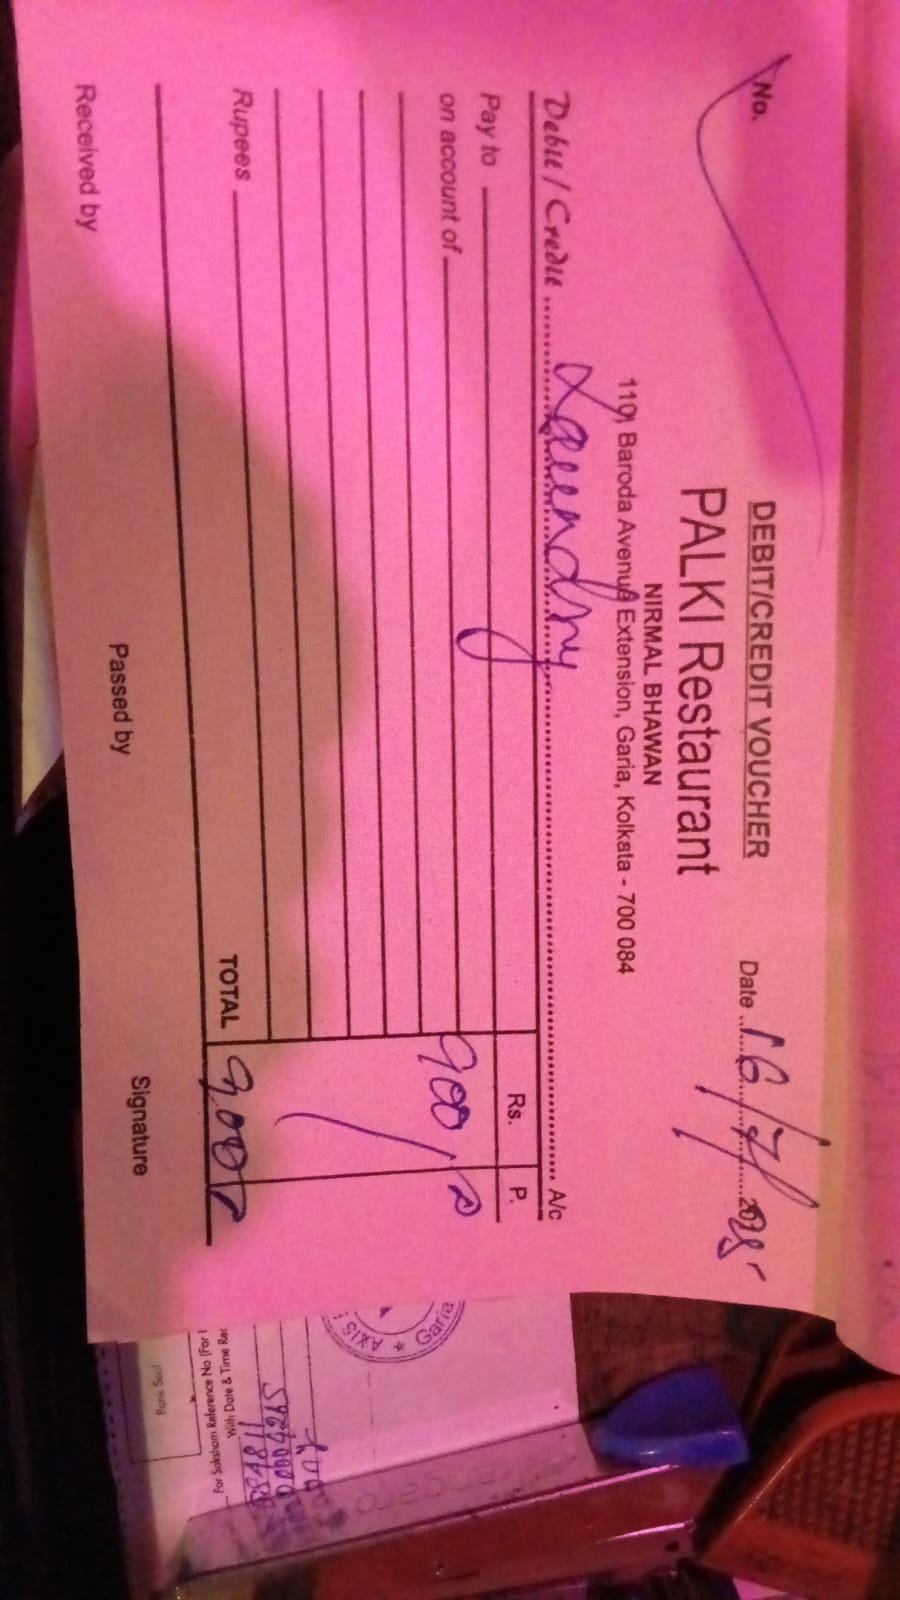 DEBIT/CREDIT VOUCHER
No.
Date 16/7/2025
PALKI Restaurant
NIRMAL BHAWAN
110, Baroda Avenue Extension, Garia, Kolkata - 700 084
Debit / Credit Lauendry A/c
Pay to Rs. P.
on account of 900/-
Rupees TOTAL 900
Received by Passed by Signature
Garia
AXIS
For Saksham Reference No (For
With Date & Time
Bank Seal